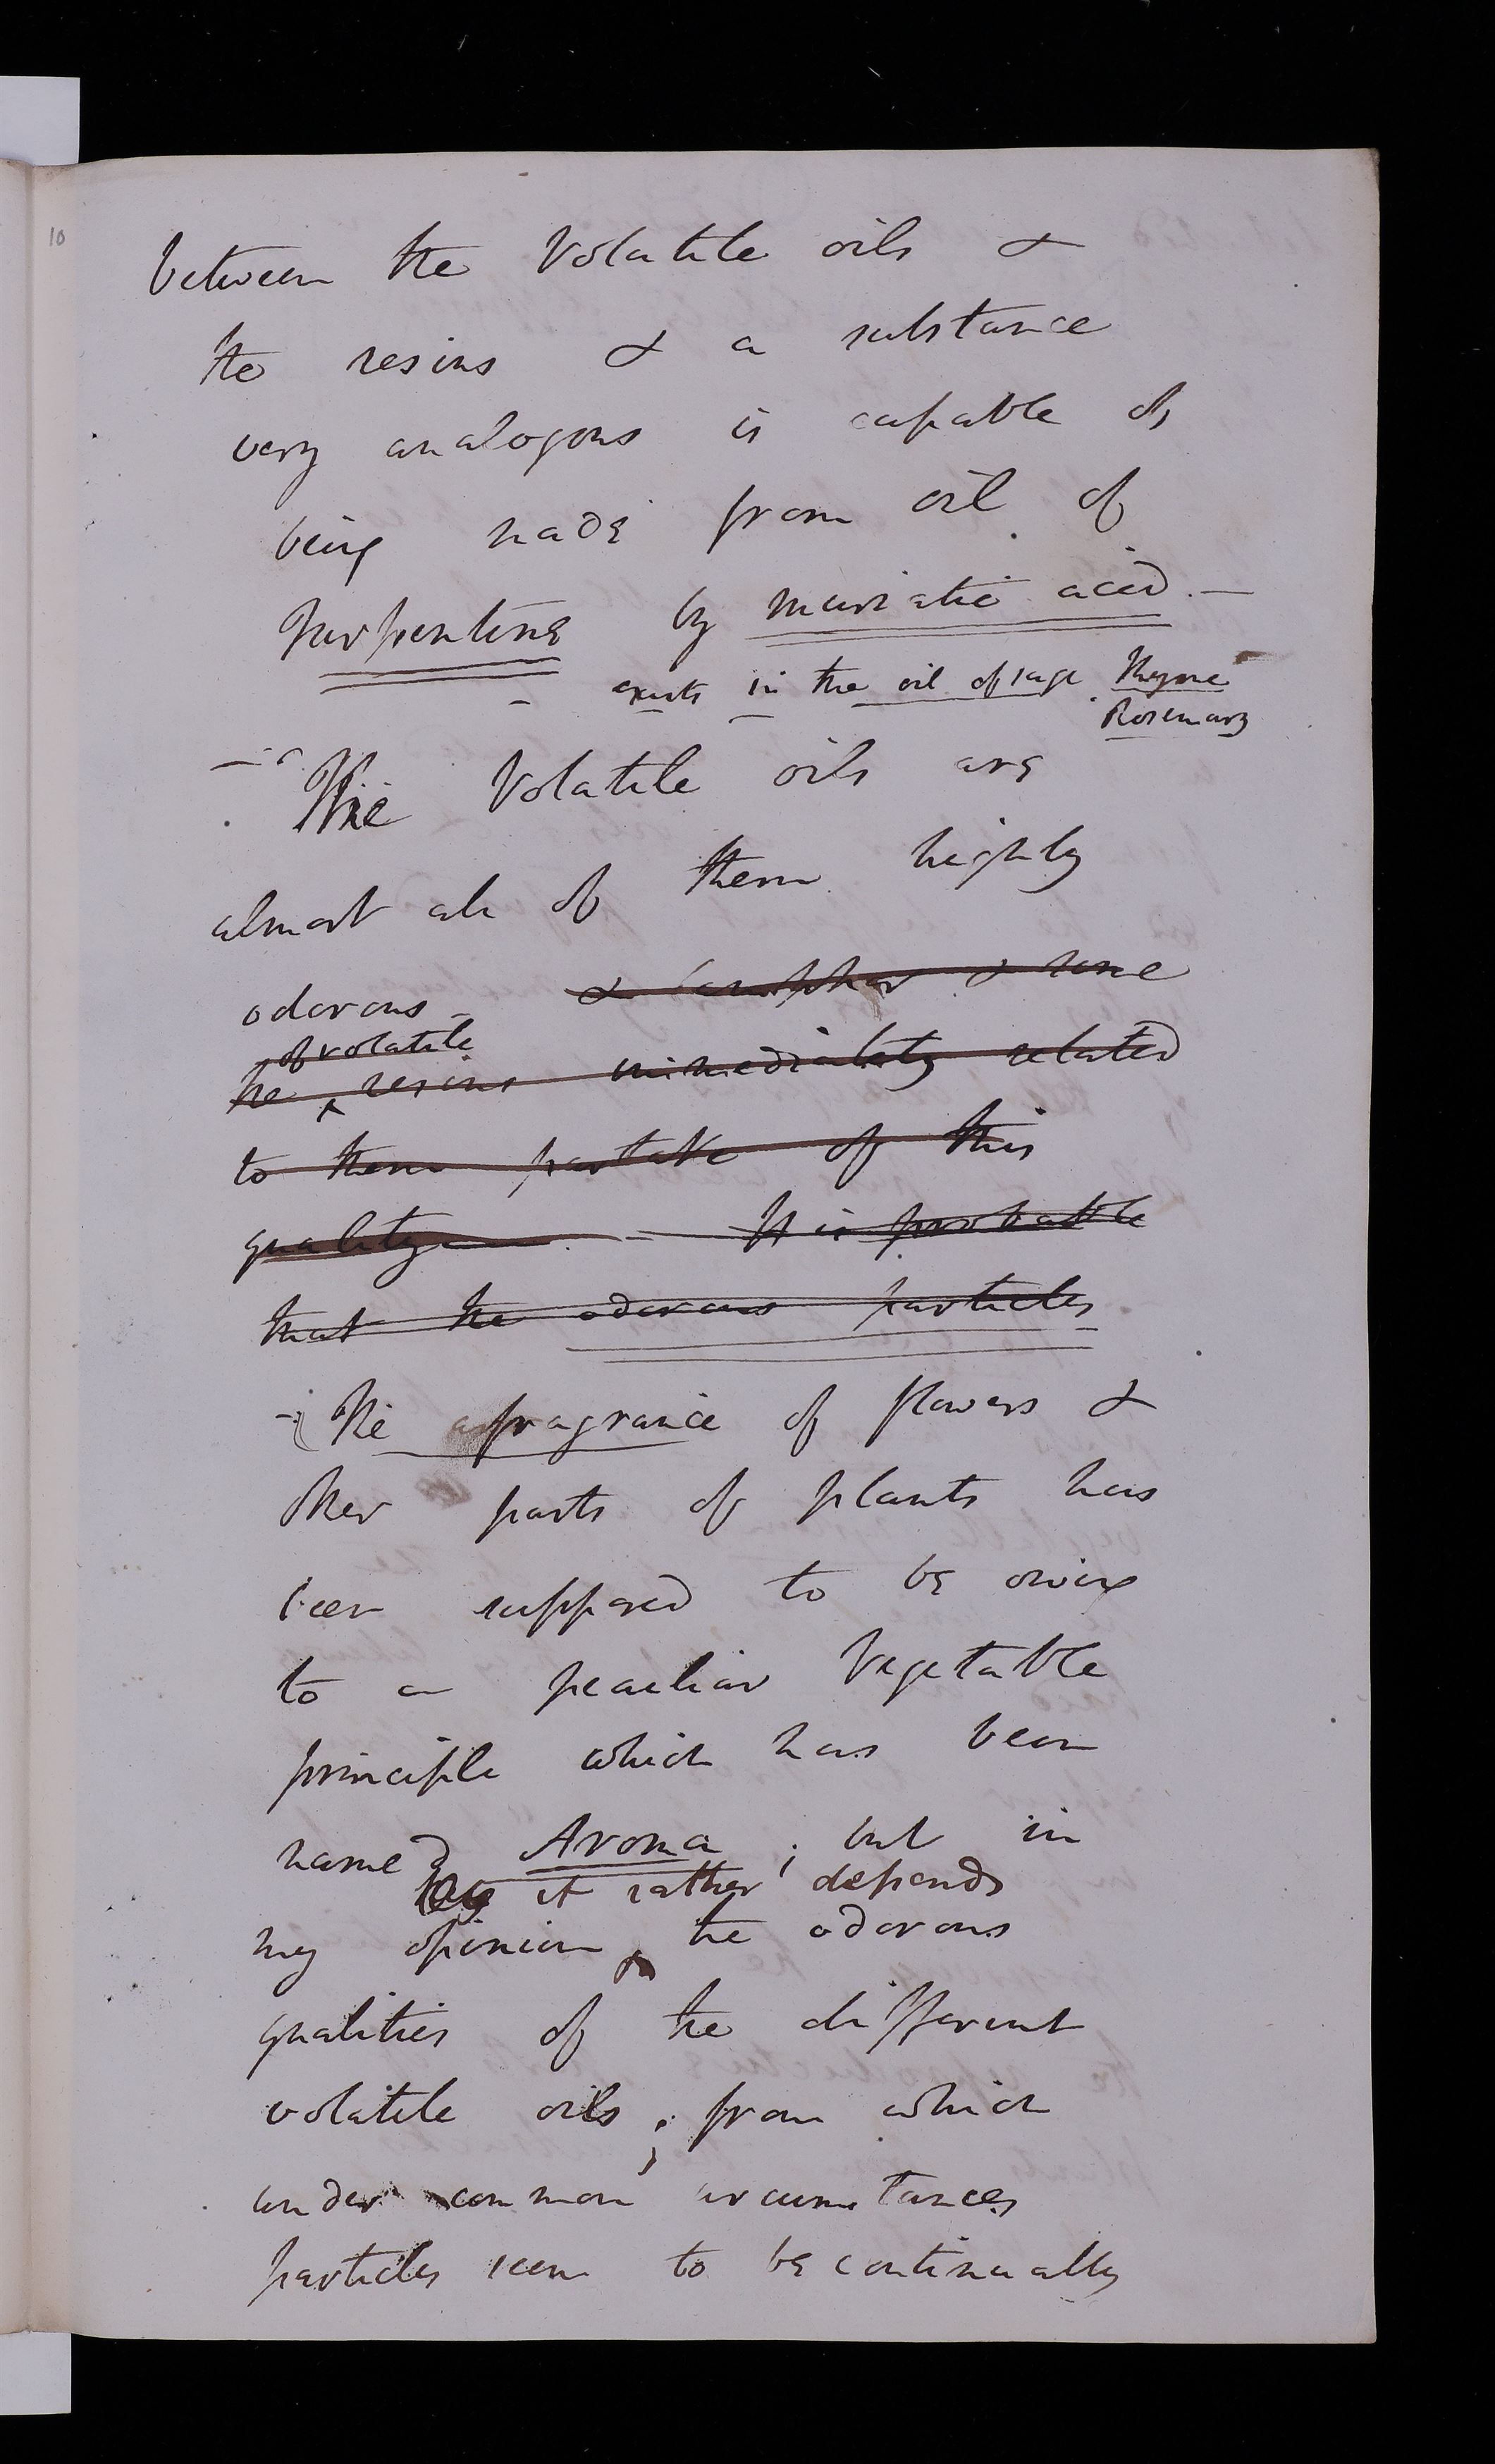 10
between the Volatile oils &
the resins & a substance
very analogous is capable of
being made from oil of
turpentine by muriatic acid. —
- exists in the oil of sage Thyme
Rosemary
— The Volatile oils are
almost all of them highly
odorous - & Camphor & some
of volatile
the resins immediately related
to them partake of this
quality — It is probable
that the odorous particles
- The fragrance of flowers &
other parts of plants has
been supposed to be owing
to a peculiar Vegetable
principle which has been
named Aroma; but in
it rather depends
my opinion the odorous
qualities of the different
volatile oils; from which
under common circumstances
particles seem to be continually